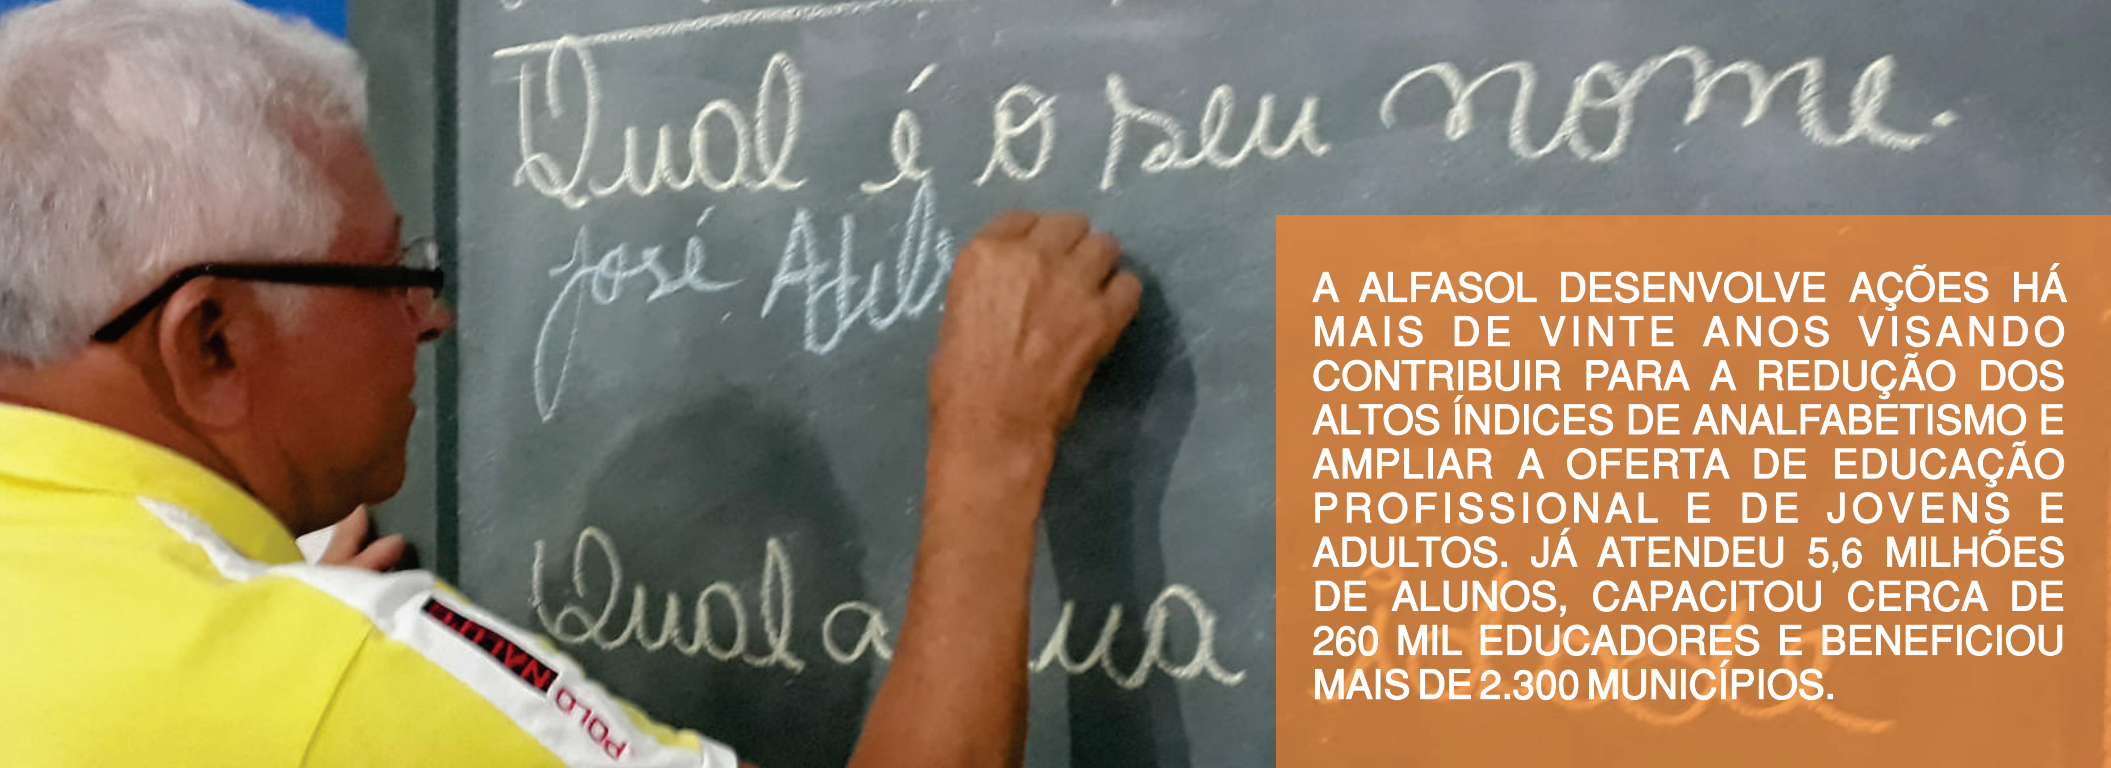 Qual é o seu nome.
José
Qual a
A ALFASOL DESENVOLVE AÇÕES HÁ
MAIS DE VINTE ANOS VISANDO
CONTRIBUIR PARA A REDUÇÃO DOS
ALTOS ÍNDICES DE ANALFABETISMO E
AMPLIAR A OFERTA DE EDUCAÇÃO
PROFISSIONAL E DE JOVENS E
ADULTOS. JÁ ATENDEU 5,6 MILHÕES
DE ALUNOS, CAPACITOU CERCA DE
260 MIL EDUCADORES E BENEFICIOU
MAIS DE 2.300 MUNICÍPIOS.
POLO